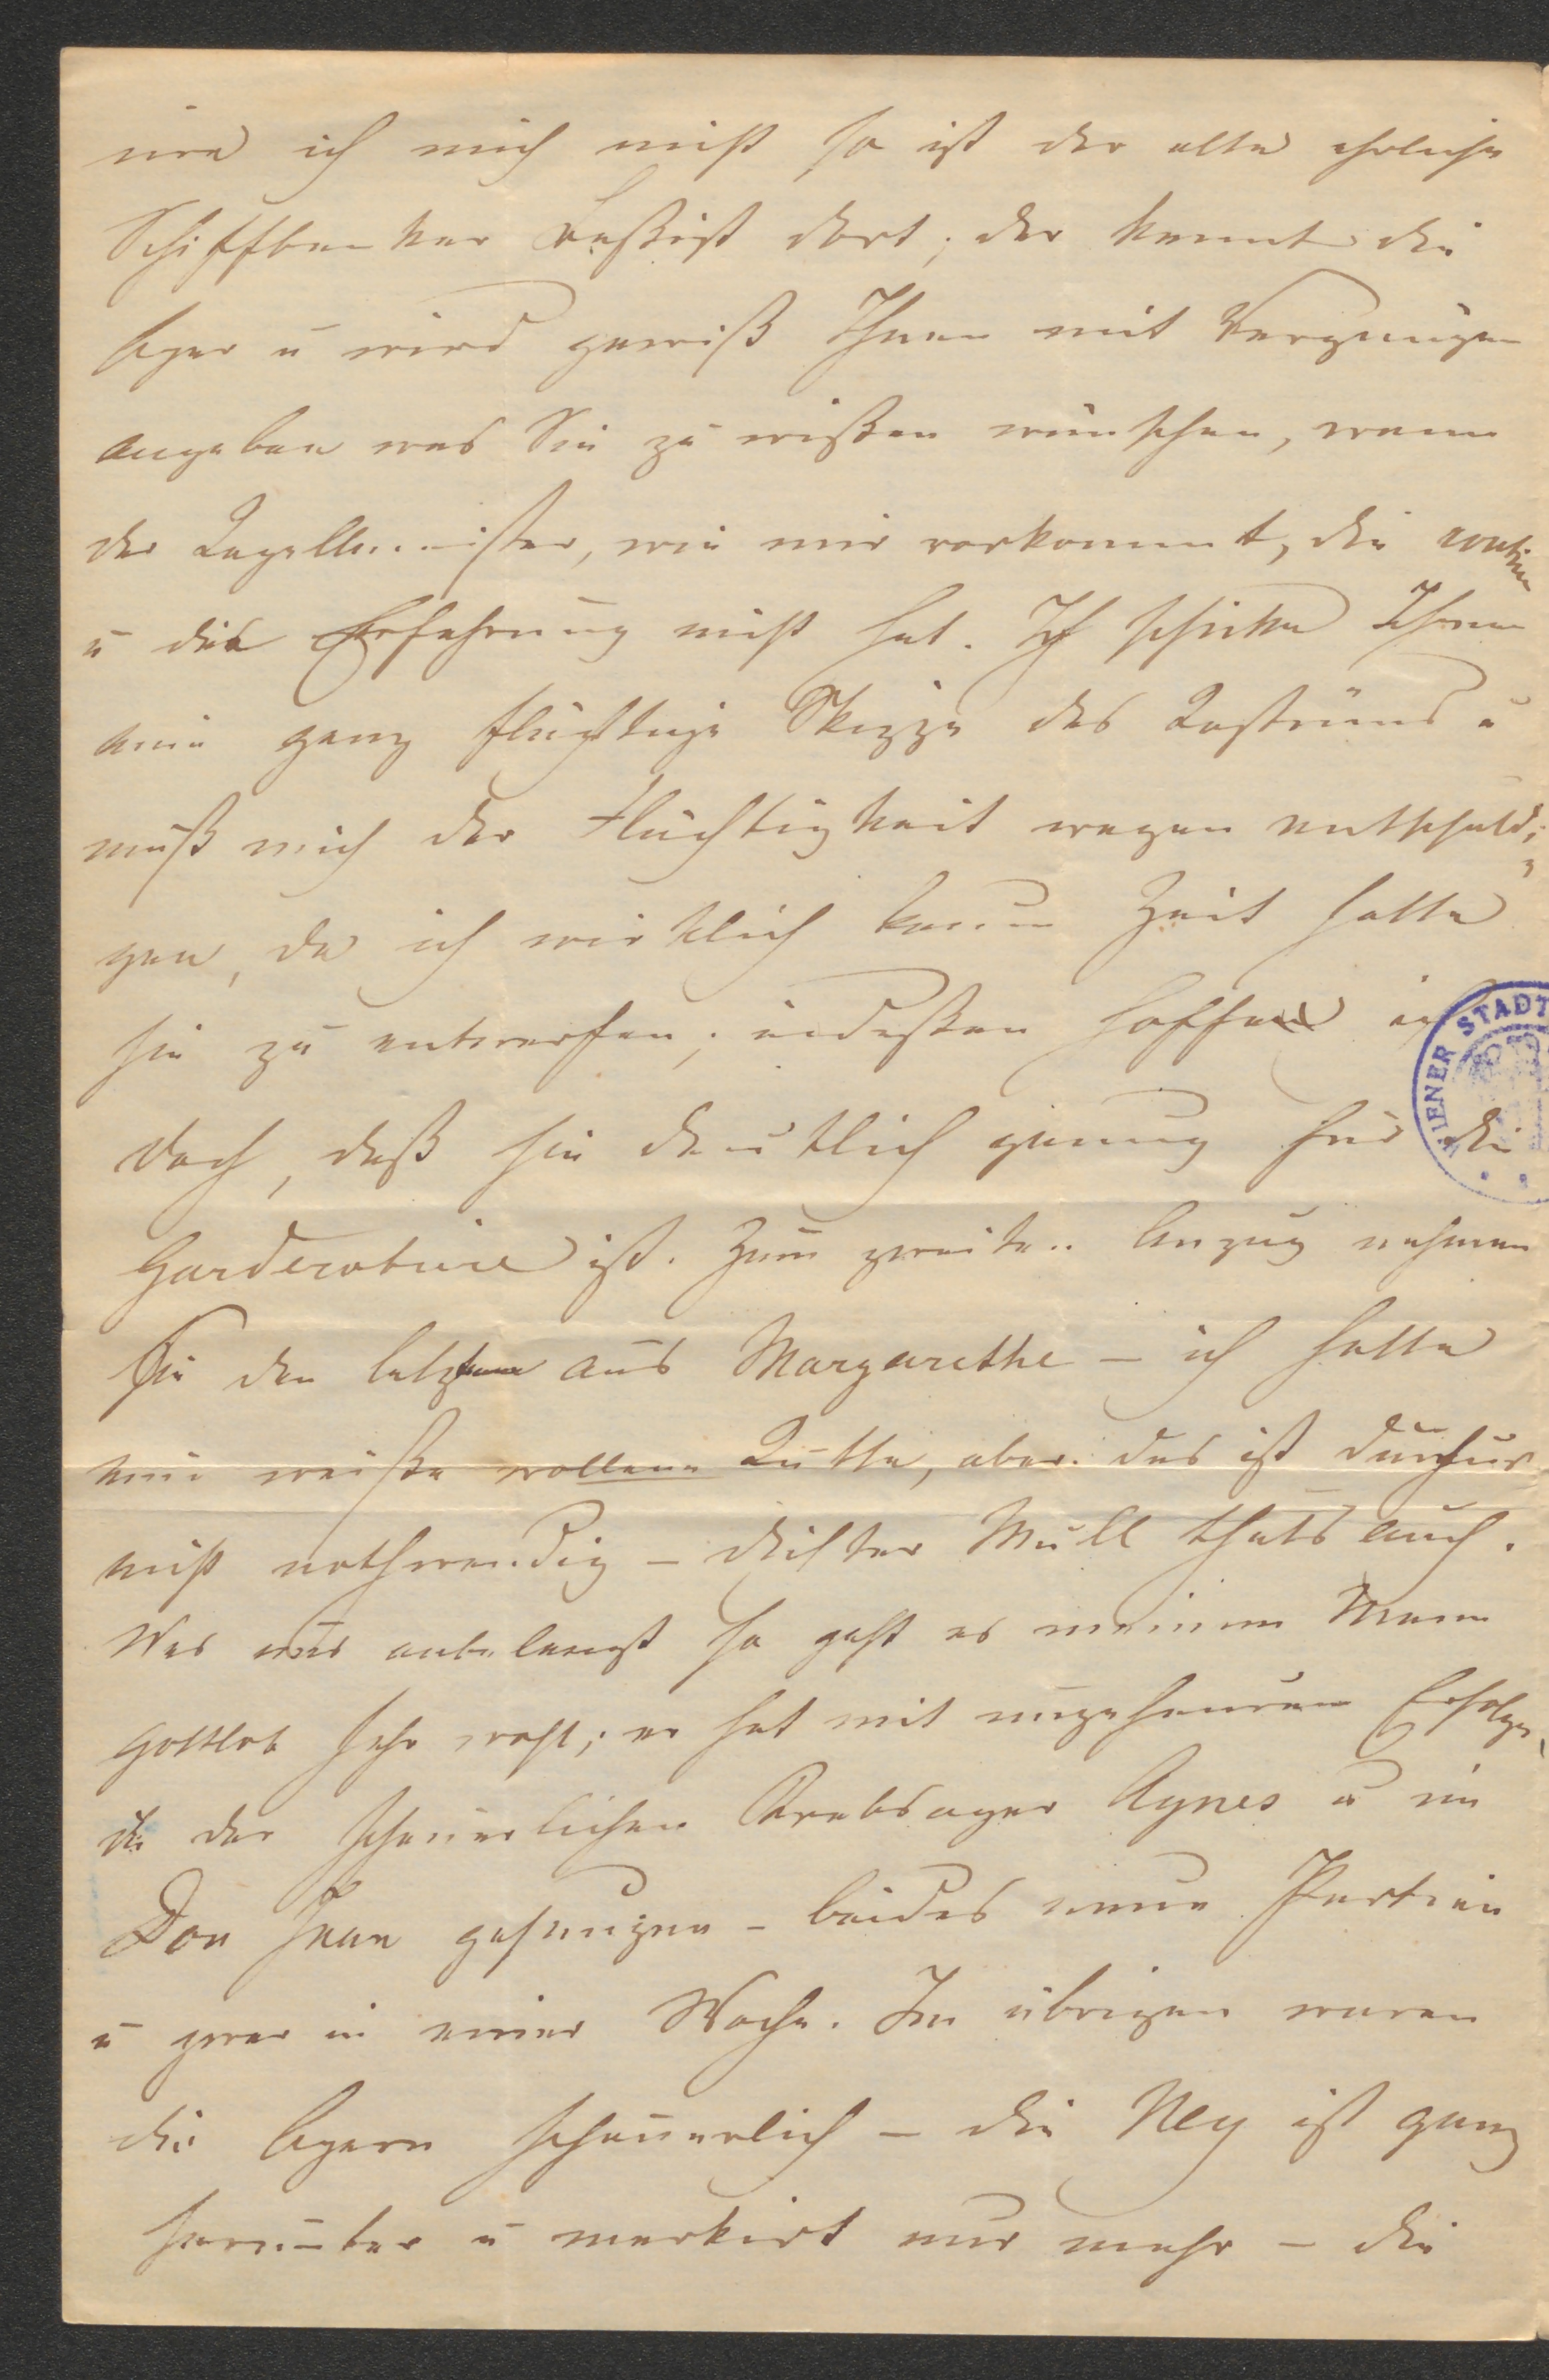 irre ich mich nicht so ist der alte ehrliche
Schiffbenker Baßist dort, der kennt die
Oper u wird gewiß Ihnen mit Vergnügen
angeben was Sie zu wißen wünschen, wenn
der Kapellmeister, wie mir vorkommt, die routine
u die Erfahrung nicht hat. Ich schicke Ihnen
eine ganz flüchtige Skizze des Kostüms u
muß mich der Flüchtigkeit wegen entschuldi-
gen, da ich wirklich kaum Zeit hatte
sie zu entwerfen; indeßen hoffe ich
doch, daß sie deutlich genug für die
Garderobiere ist. Zum zweiten Anzug nehmen
Sie den letzten aus Margarethe – ich hatte
eine weiße wollene Kutte, aber das ist durchaus
nicht nothwendig – dichter Mull thuts auch.
Was uns anbelangt so geht es meinem Mann
gottlob sehr wohl; er hat mit ungeheurem Erfolge
in der schauerlichen Krebsoper Agnes u im
Don Juan gesungen – beides neue Partien
u zwar in einer Woche. Im übrigen waren
die Opern schauerlich – die Ney ist ganz
herunter u markirt nur mehr – die
WIENER STADT